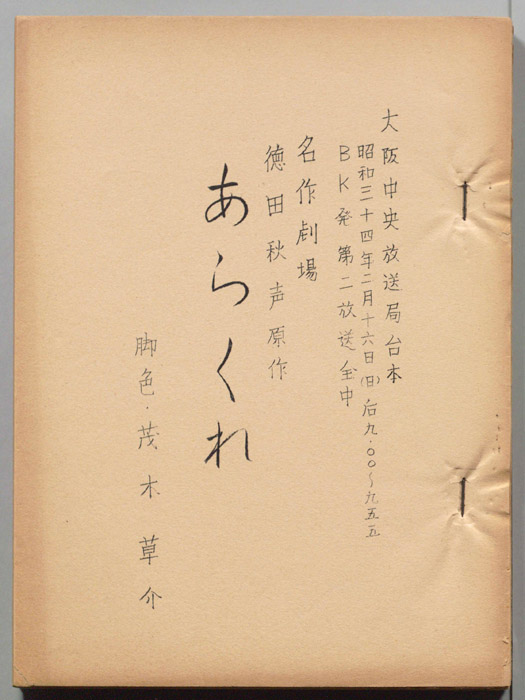 大阪中央放送局台本
昭和三十四年二月十六日(日)后九・〇〇〜九五五
BK発第二放送全中
名作劇場
徳田秋声原作
あらくれ
脚色・茂木草介